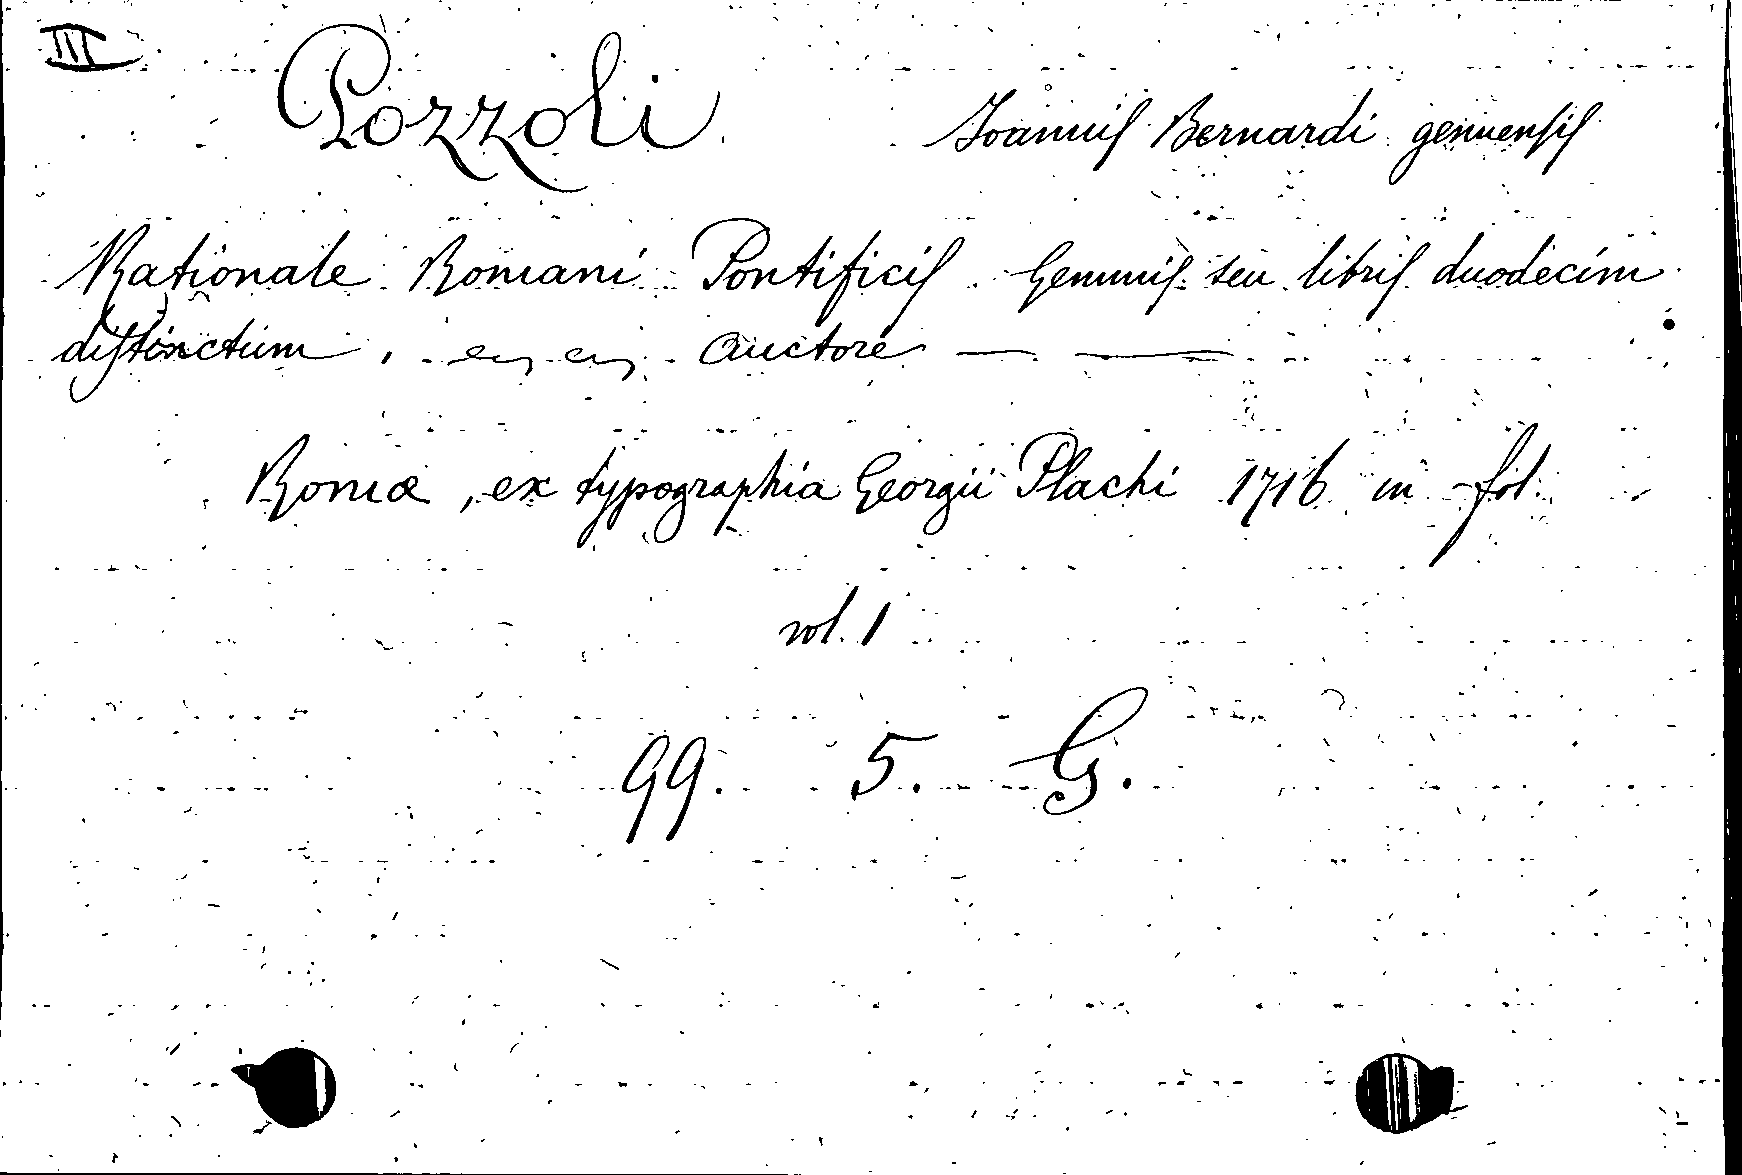 III
Pozzoli Joannis Bernardi genuensis
Rationale Romani Pontificis Gemmis seu libris duodecim
distinctum, auctore — —
Romæ, ex typographia Georgii Plachi 1716 in fol.
vol. 1
99. 5. G.